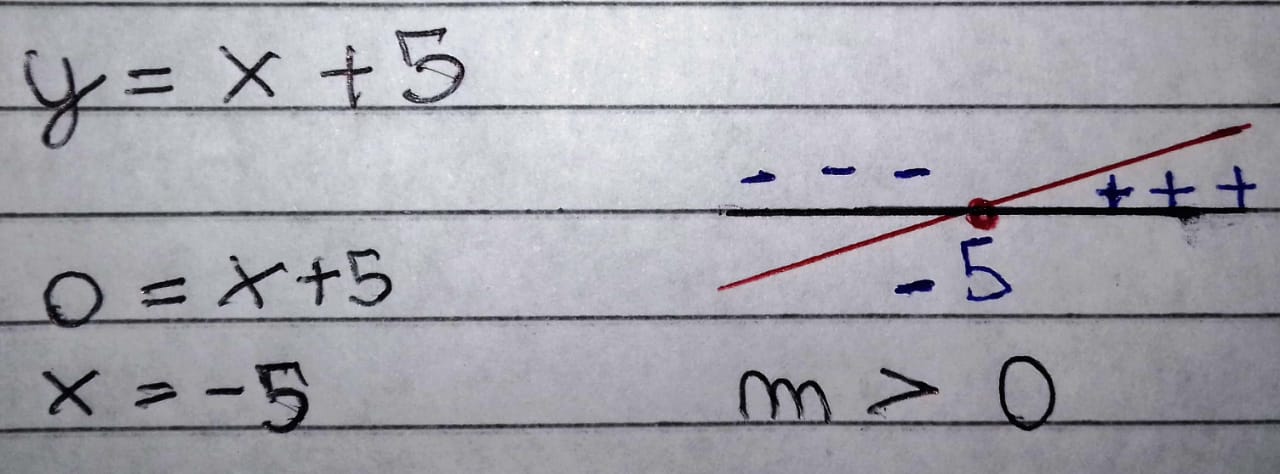 y = x + 5
- - - + + +
- 5
0 = x + 5
x = - 5
m > 0